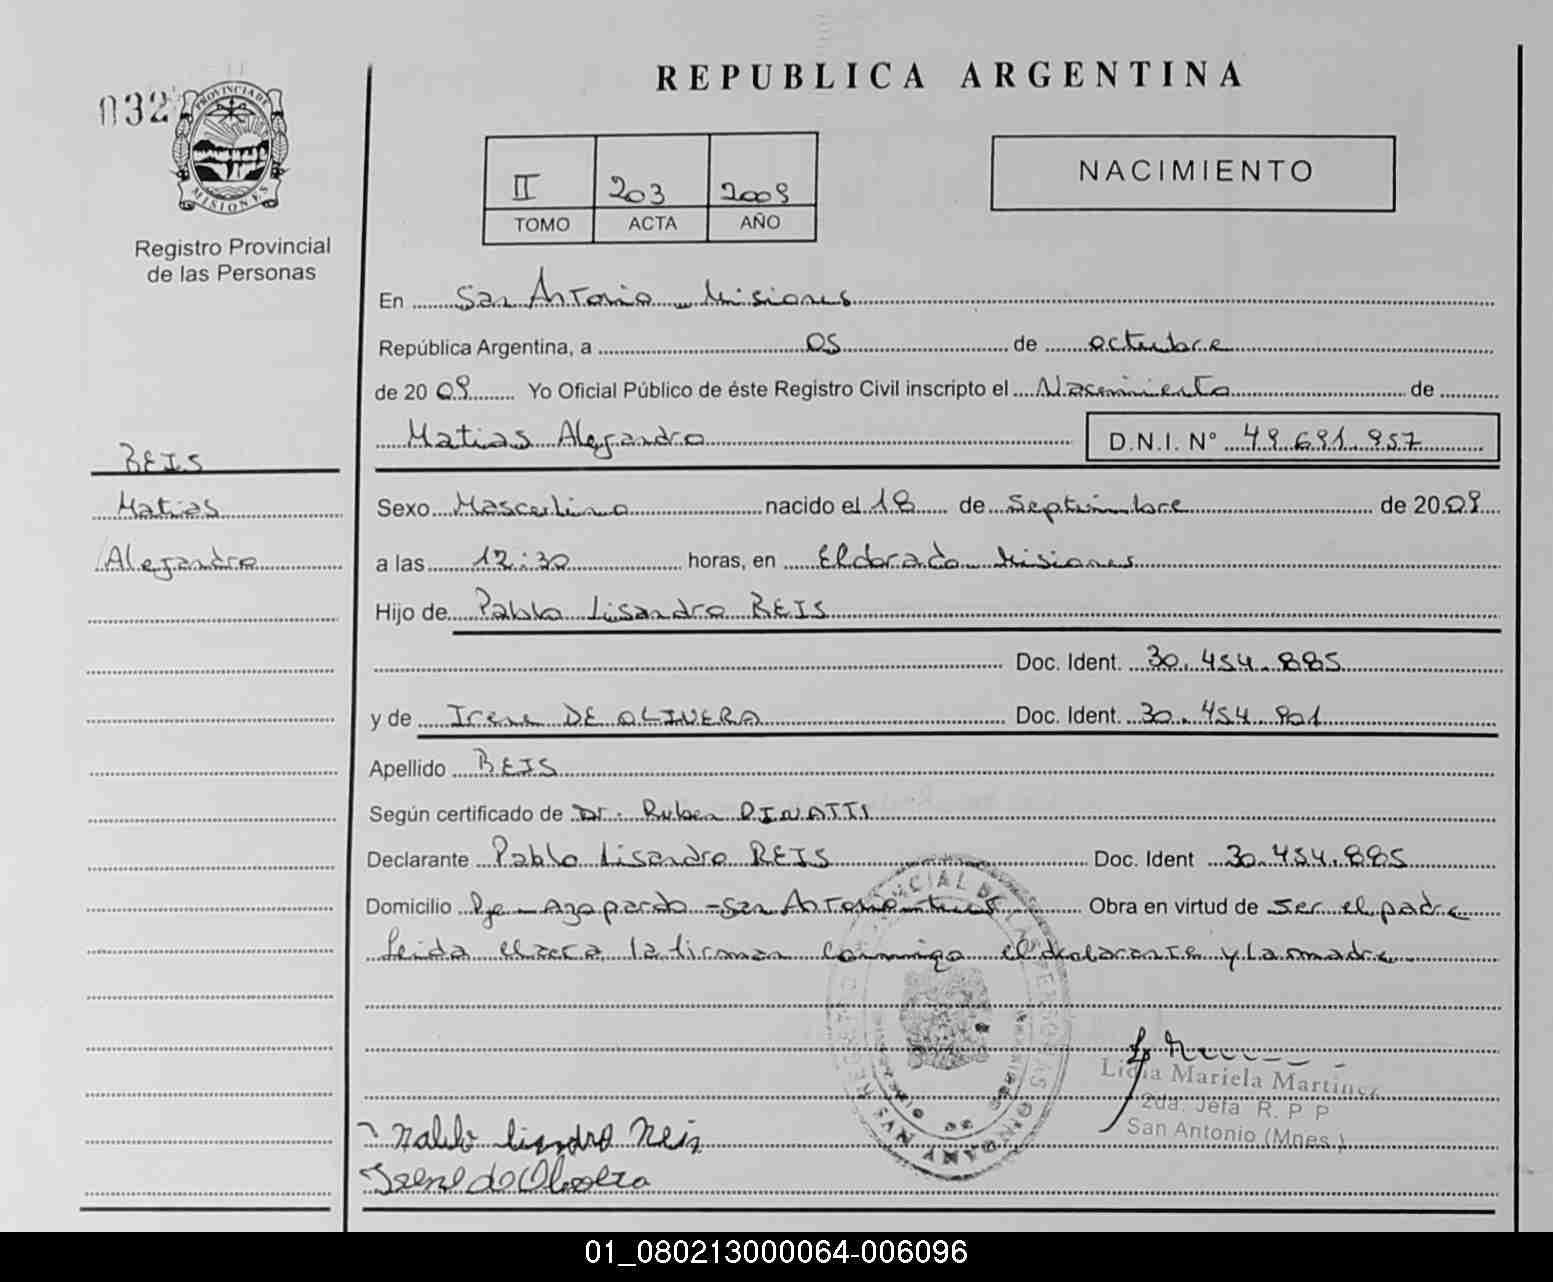 REPUBLICA ARGENTINA
032
PROVINCIA DE
MISIONES
Registro Provincial
de las Personas
II 203 2009
TOMO ACTA AÑO
NACIMIENTO
En San Antonio Misiones
República Argentina, a 05 de octubre
de 20 09 Yo Oficial Público de éste Registro Civil inscripto el Nacimiento de
Matias Alejandro D.N.I. N° 49.691.957
REIS
Matias
Alejandro
Sexo Masculino nacido el 18 de Septiembre de 20 09
a las 12:30 horas, en Eldorado Misiones
Hijo de Pablo Lisandro REIS
Doc. Ident. 30.454.885
y de Irene DE OLIVERA Doc. Ident. 30.454.901
Apellido REIS
Según certificado de Dr. Ruben
Declarante Pablo Lisandro REIS Doc. Ident 30.454.885
Domicilio Pje Azopardo - San Antonio Obra en virtud de ser el padre
Leida el acta la firman conmigo el declarante y la madre
Lidia Mariela Martinez
2da. Jefa R. P. P
San Antonio (Mnes.)
Pablo Lisandro Reis
Irene de Olivera
01_080213000064-006096